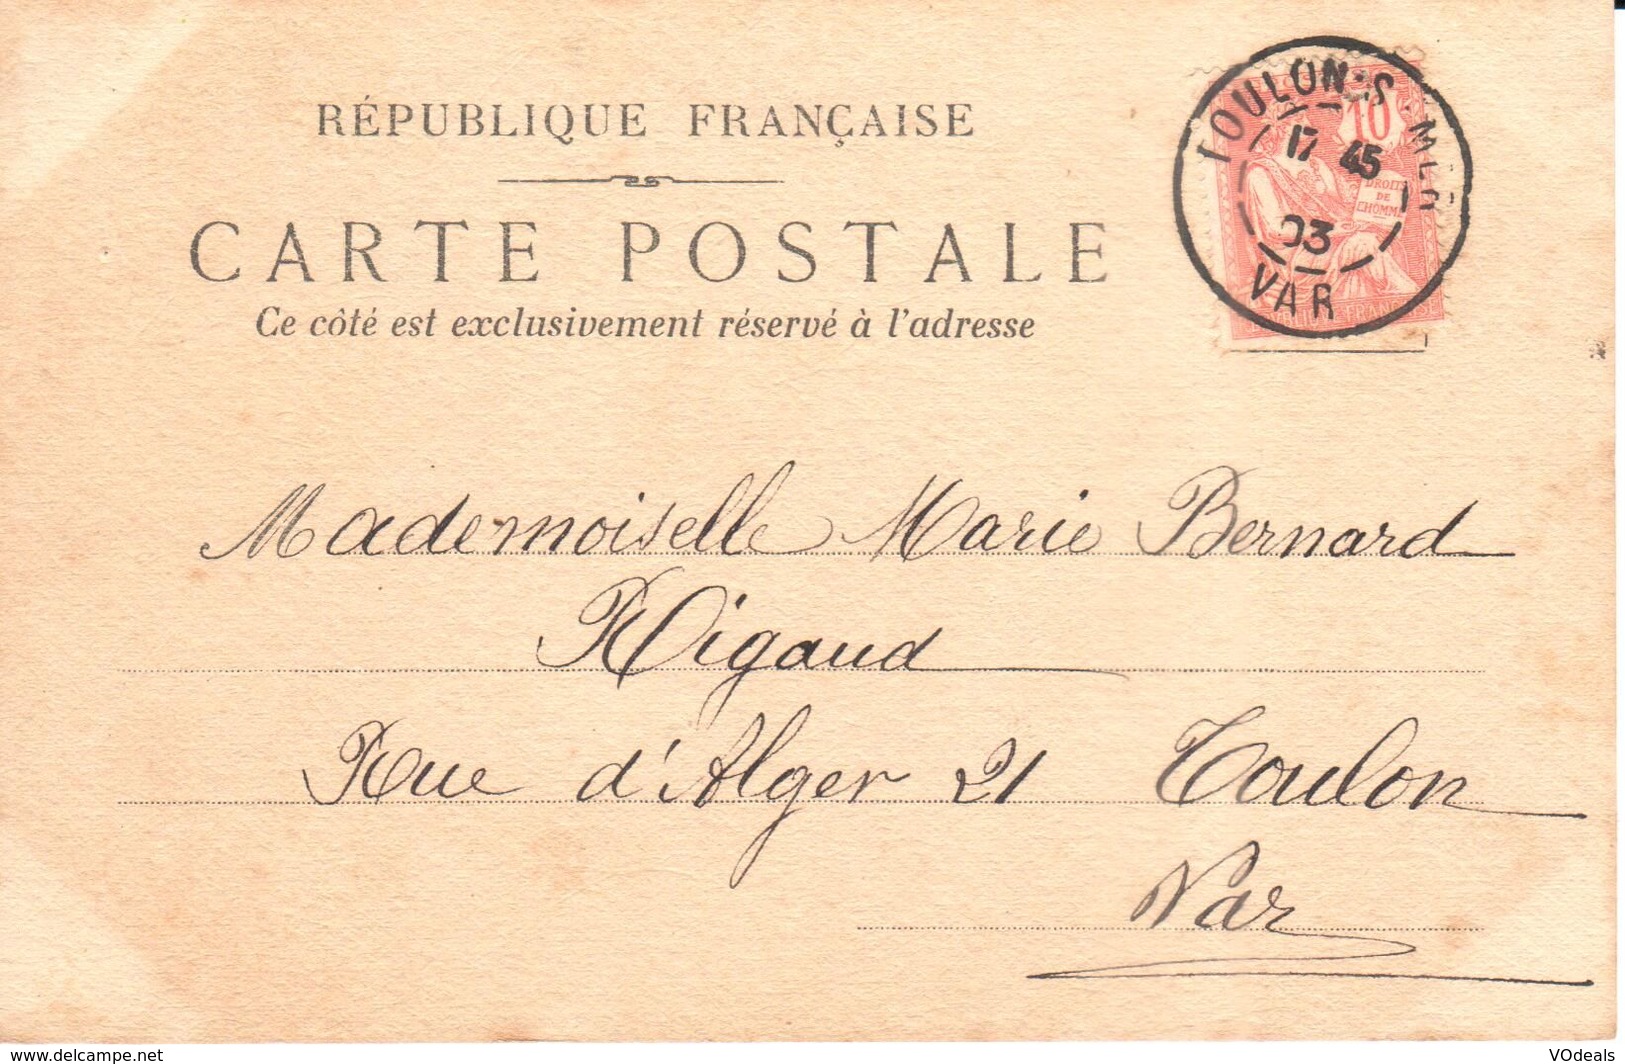 RÉPUBLIQUE FRANÇAISE
CARTE POSTALE
Ce côté est exclusivement réservé à l'adresse
TOULON-S-MER
17 45
03
VAR
10
DROITS
DE
L'HOMME
Mademoiselle Marie Bernard
Rigaud
Rue d'Alger 21 Toulon
Var
www.delcampe.net
VOdeals